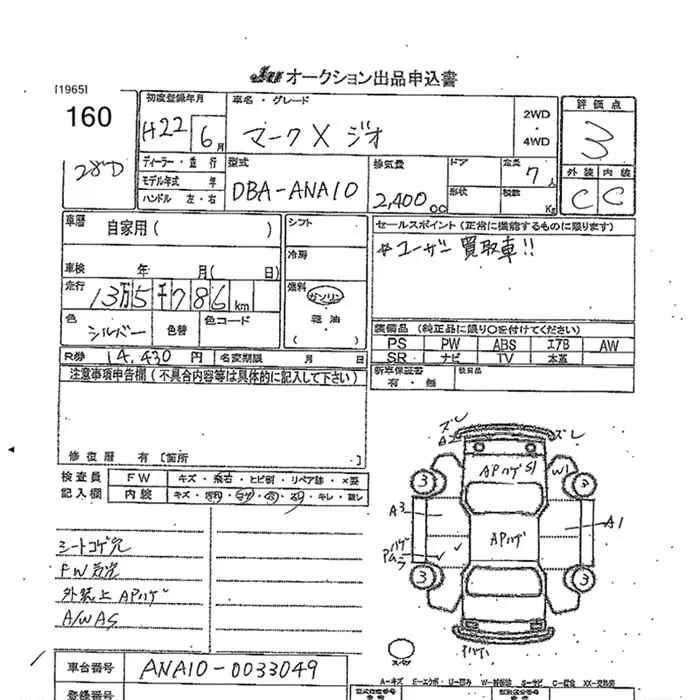 オークション出品申込書
[1965]
160
初度登録年月
H22 6月
車名・グレード
マークX ジオ
2WD
・
4WD
評価点
3
外装 内装
C C
ディーラー・並行
モデル年式 年
ハンドル 左・右
型式
DBA-ANA10
排気量
2,400cc
ドア
形状
定員
7人
積載
Kg
車暦
自家用( )
シフト
冷房
セールスポイント(正常に機能するものに限ります)
*ユーザー買取車!!
車検 年 月( 日)
走行
13万5千786km
燃料
ガソリン
軽油
( )
色
シルバー
色替
色コード
装備品(純正品に限り○を付けてください)
PS PW ABS エアB AW
SR ナビ TV 本革
R券 14,430円
名変期限 月 日
新車保証書
有・無
注意事項申告欄(不具合内容等は具体的に記入して下さい)
修復暦 有〔箇所 〕
検査員
記入欄
FW
キズ・飛石・ヒビ割・リペア跡・×要
内装
シートコゲ穴
外装上 APハゲ
A/WAS
ズレ
ズレ
A2
APハゲ S1
W1
3
3
A3
A1
APハゲ
3
3
スペア
車台番号
ANA10-0033049
登録番号